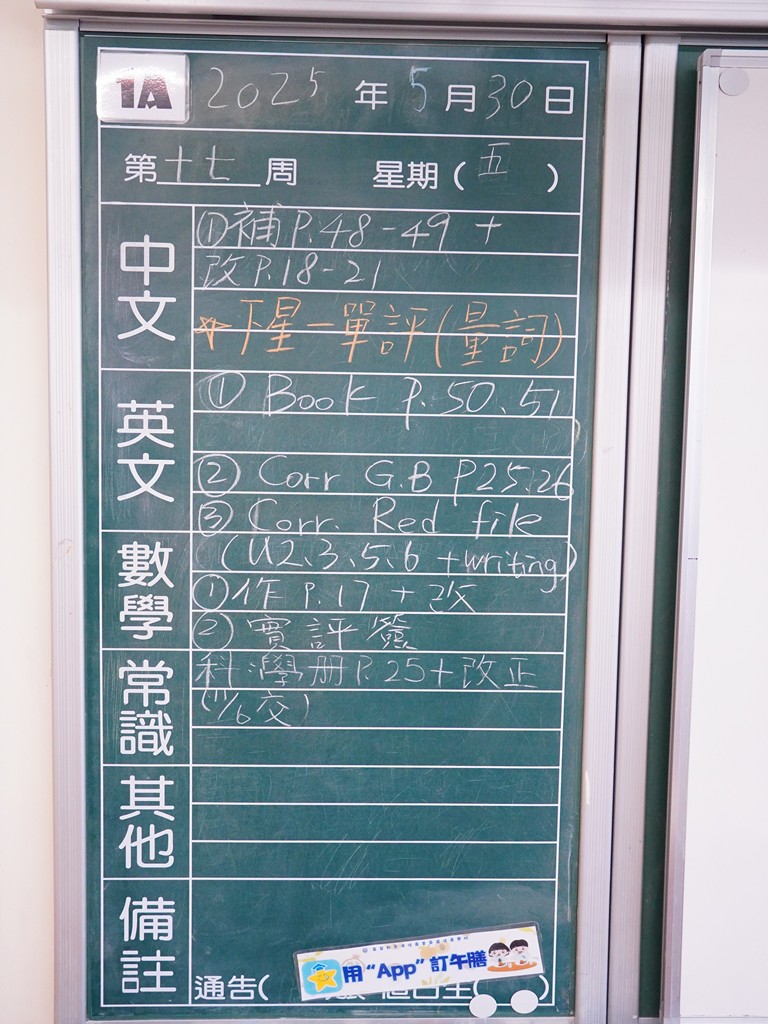 1A 2025 年 5 月 30 日
第 十七 周 星期 ( 五 )
中文
①補 P.48-49 +
改 P.18-21
☆下星一單評(量詞)
英文
① Book P.50、51
② Corr G.B P25.26
③ Corr. Red file
(U2、3、5、6 +writing)
數學
①作 P.17 + 改
② 實評簽
常識
科學册 P.25 + 改正
(11/6 交)
其他
備註
用 “App” 訂午膳
通告(
)